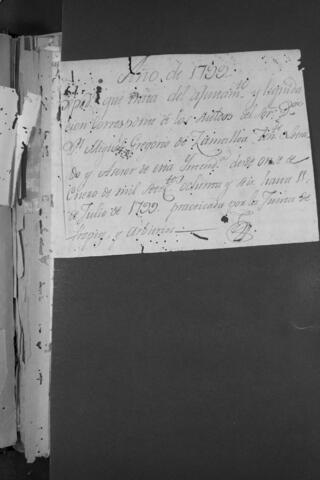 Año de 1799
que trata del ajustam.to y liquida
cion corresponᵈ.te a los sueldos del Sr. Dn
Dn. Miguel Gregorio de Zamalloa, Ten.te
do y Asesor de esta Intend.a desde once de
Enero de mil setec.tos ochenta y seis hasta 11
de Julio de 1799. practicada por la Junta de
Propios, y Arbitrios